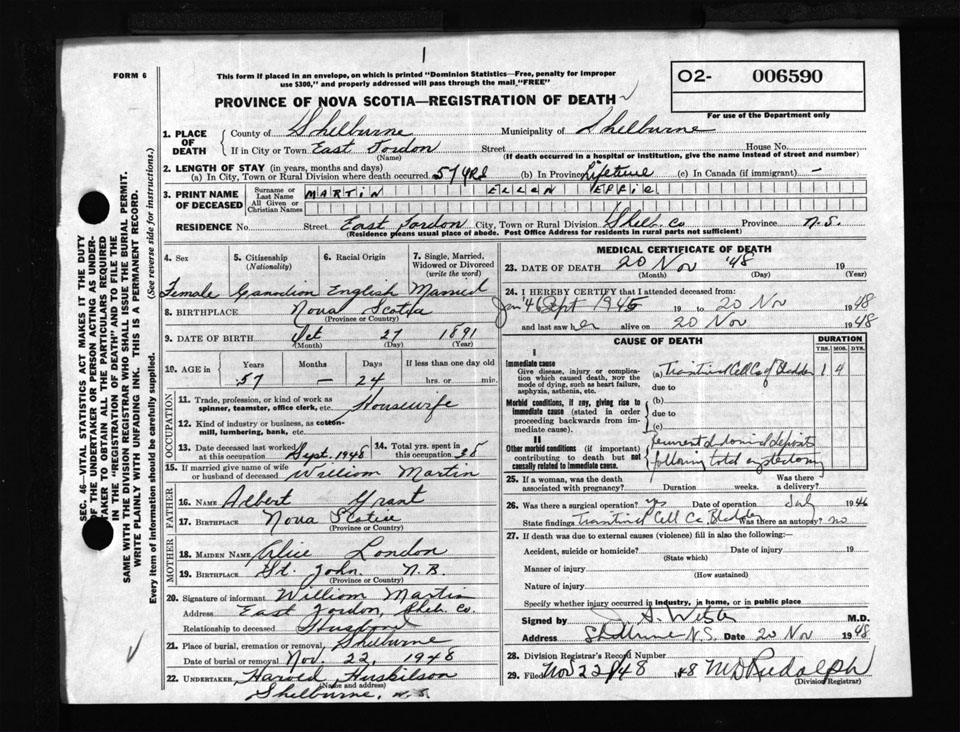 1
FORM 6
This form if placed in an envelope, on which is printed "Dominion Statistics—Free, penalty for improper
use $300," and properly addressed will pass through the mail "FREE"
O2- 006590
PROVINCE OF NOVA SCOTIA—REGISTRATION OF DEATH
For use of the Department only
1. PLACE OF DEATH County of Shelburne Municipality of Shelburne
If in City or Town East Jordon Street House No.
(Name) (If death occurred in a hospital or institution, give the name instead of street and number)
2. LENGTH OF STAY (in years, months and days)
(a) In City, Town or Rural Division where death occurred 57 yrs (b) In Province Lifetime (c) In Canada (if immigrant) —
3. PRINT NAME OF DECEASED Surname or Last Name MARTIN ELLEN EFFIE
All Given or Christian Names
RESIDENCE No. Street East Jordon City, Town or Rural Division Shelb. Co Province N.S.
(Residence means usual place of abode. Post Office Address for residents in rural parts not sufficient)
SEC. 46—VITAL STATISTICS ACT MAKES IT THE DUTY
OF THE UNDERTAKER OR PERSON ACTING AS UNDER-
TAKER TO OBTAIN ALL THE PARTICULARS REQUIRED
IN THE "REGISTRATION OF DEATH" AND TO FILE THE
SAME WITH THE DIVISION REGISTRAR WHO SHALL ISSUE THE BURIAL PERMIT.
WRITE PLAINLY WITH UNFADING INK. THIS IS A PERMANENT RECORD.
Every item of information should be carefully supplied. (See reverse side for instructions.)
4. Sex 5. Citizenship (Nationality) 6. Racial Origin 7. Single, Married, Widowed or Divorced (write the word)
Female Canadian English Married
8. BIRTHPLACE Nova Scotia
(Province or Country)
9. DATE OF BIRTH Oct 27 1891
(Month) (Day) (Year)
10. AGE in Years Months Days If less than one day old
57 — 24 hrs. or min.
OCCUPATION
11. Trade, profession, or kind of work as
spinner, teamster, office clerk, etc. Housewife
12. Kind of industry or business, as cotton-
mill, lumbering, bank, etc.
13. Date deceased last worked at this occupation Sept. 1948 14. Total yrs. spent in this occupation 38
15. If married give name of wife
or husband of deceased William Martin
FATHER
16. NAME Albert Grant
17. BIRTHPLACE Nova Scotia
(Province or Country)
MOTHER
18. MAIDEN NAME Alice London
19. BIRTHPLACE St. John. N.B.
(Province or Country)
20. Signature of informant William Martin
Address East Jordon, Shelb. Co.
Relationship to deceased Husband
21. Place of burial, cremation or removal Shelburne
Date of burial or removal Nov. 22, 1948
22. UNDERTAKER Harold Huskilson
(Name and address)
Shelburne, N.S.
MEDICAL CERTIFICATE OF DEATH
23. DATE OF DEATH 20 Nov '48 19
(Month) (Day) (Year)
24. I HEREBY CERTIFY that I attended deceased from:
Jan '46 Sept 1946 19 to 20 Nov 1948
and last saw her alive on 20 Nov 1948
CAUSE OF DEATH DURATION
YRS. MOS. DYS.
I
Immediate cause
Give disease, injury or complica-
tion which caused death, not the
mode of dying, such as heart failure,
asphyxia, asthenia, etc.
(a) Transitional Cell Ca of Bladder 1 4
due to
Morbid conditions, if any, giving rise to
immediate cause (stated in order
proceeding backwards from im-
mediate cause).
(b)
due to
(c)
II
Other morbid conditions (if important)
contributing to death but not
causally related to immediate cause.
deposits
following total cystectomy
25. If a woman, was the death
associated with pregnancy? Duration weeks. Was there a delivery?
26. Was there a surgical operation? yes Date of operation July 1946
State findings Transitional Cell Ca. Bladder Was there an autopsy? no
27. If death was due to external causes (violence) fill in also the following:—
Accident, suicide or homicide? Date of injury 19
(State which)
Manner of injury
(How sustained)
Nature of injury
Specify whether injury occurred in industry, in home, or in public place
Signed by M.D.
Address Shelburne N.S. Date 20 Nov 1948
28. Division Registrar's Record Number
29. Filed Nov 22/48 M D Rudolph
(Division Registrar)